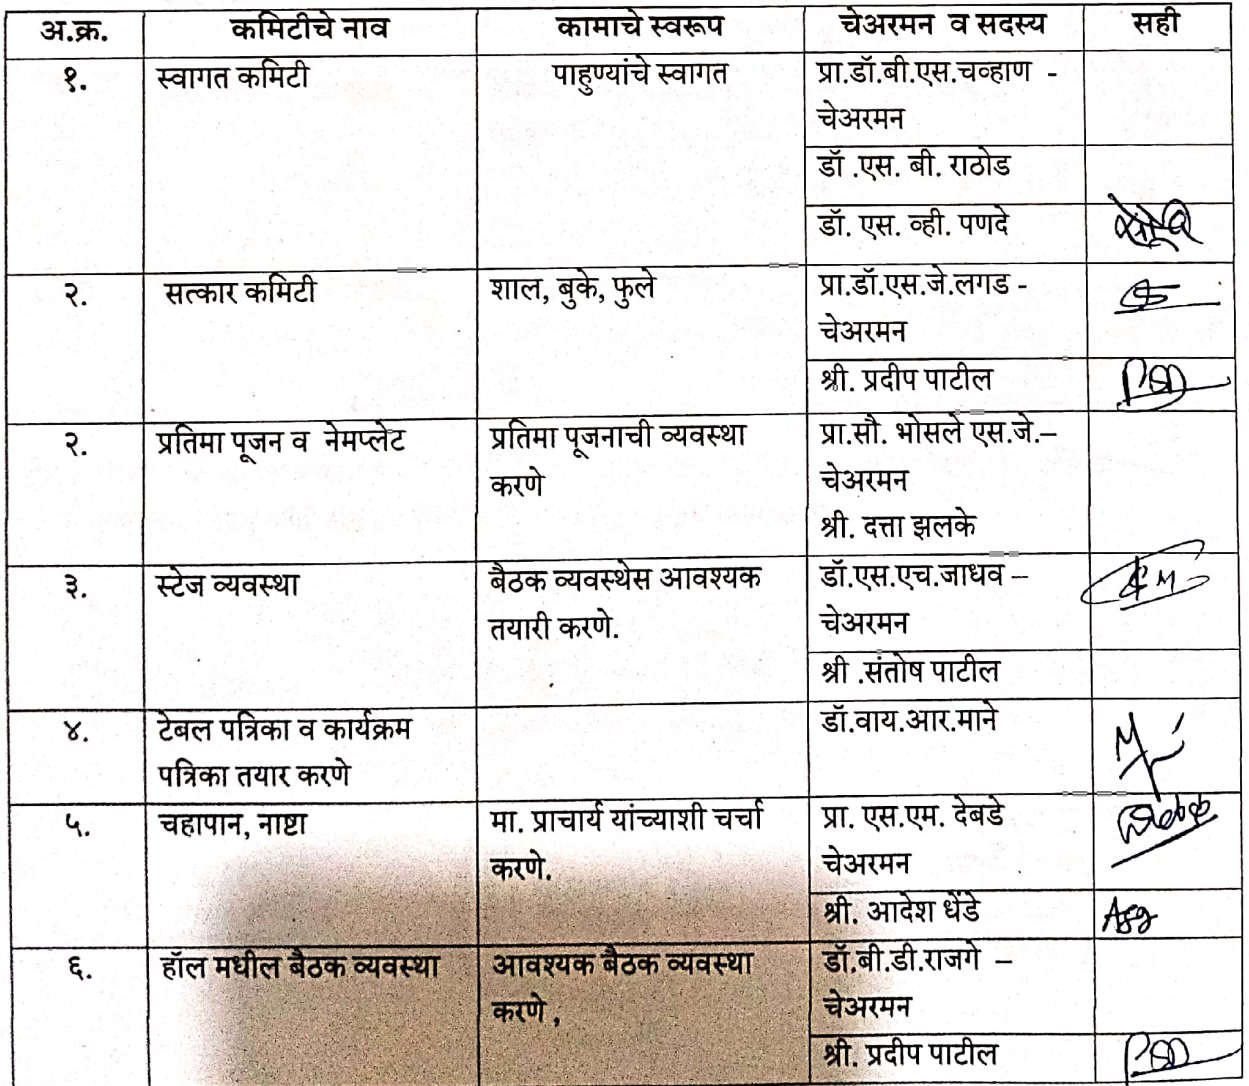 अ.क्र. कमिटीचे नाव कामाचे स्वरूप चेअरमन व सदस्य सही
१. स्वागत कमिटी पाहुण्यांचे स्वागत प्रा.डॉ.बी.एस.चव्हाण -
चेअरमन
डॉ .एस. बी. राठोड
डॉ. एस. व्ही. पणदे
२. सत्कार कमिटी शाल, बुके, फुले प्रा.डॉ.एस.जे.लगड -
चेअरमन
श्री. प्रदीप पाटील
२. प्रतिमा पूजन व नेमप्लेट प्रतिमा पूजनाची व्यवस्था प्रा.सौ. भोसले एस.जे.–
करणे चेअरमन
श्री. दत्ता झलके
३. स्टेज व्यवस्था बैठक व्यवस्थेस आवश्यक डॉ.एस.एच.जाधव –
तयारी करणे. चेअरमन
श्री .संतोष पाटील
४. टेबल पत्रिका व कार्यक्रम डॉ.वाय.आर.माने
पत्रिका तयार करणे
५. चहापान, नाष्टा मा. प्राचार्य यांच्याशी चर्चा प्रा. एस.एम. देबडे
करणे. चेअरमन
श्री. आदेश धेंडे
६. हॉल मधील बैठक व्यवस्था आवश्यक बैठक व्यवस्था डॉ.बी.डी.राजगे –
करणे , चेअरमन
श्री. प्रदीप पाटील